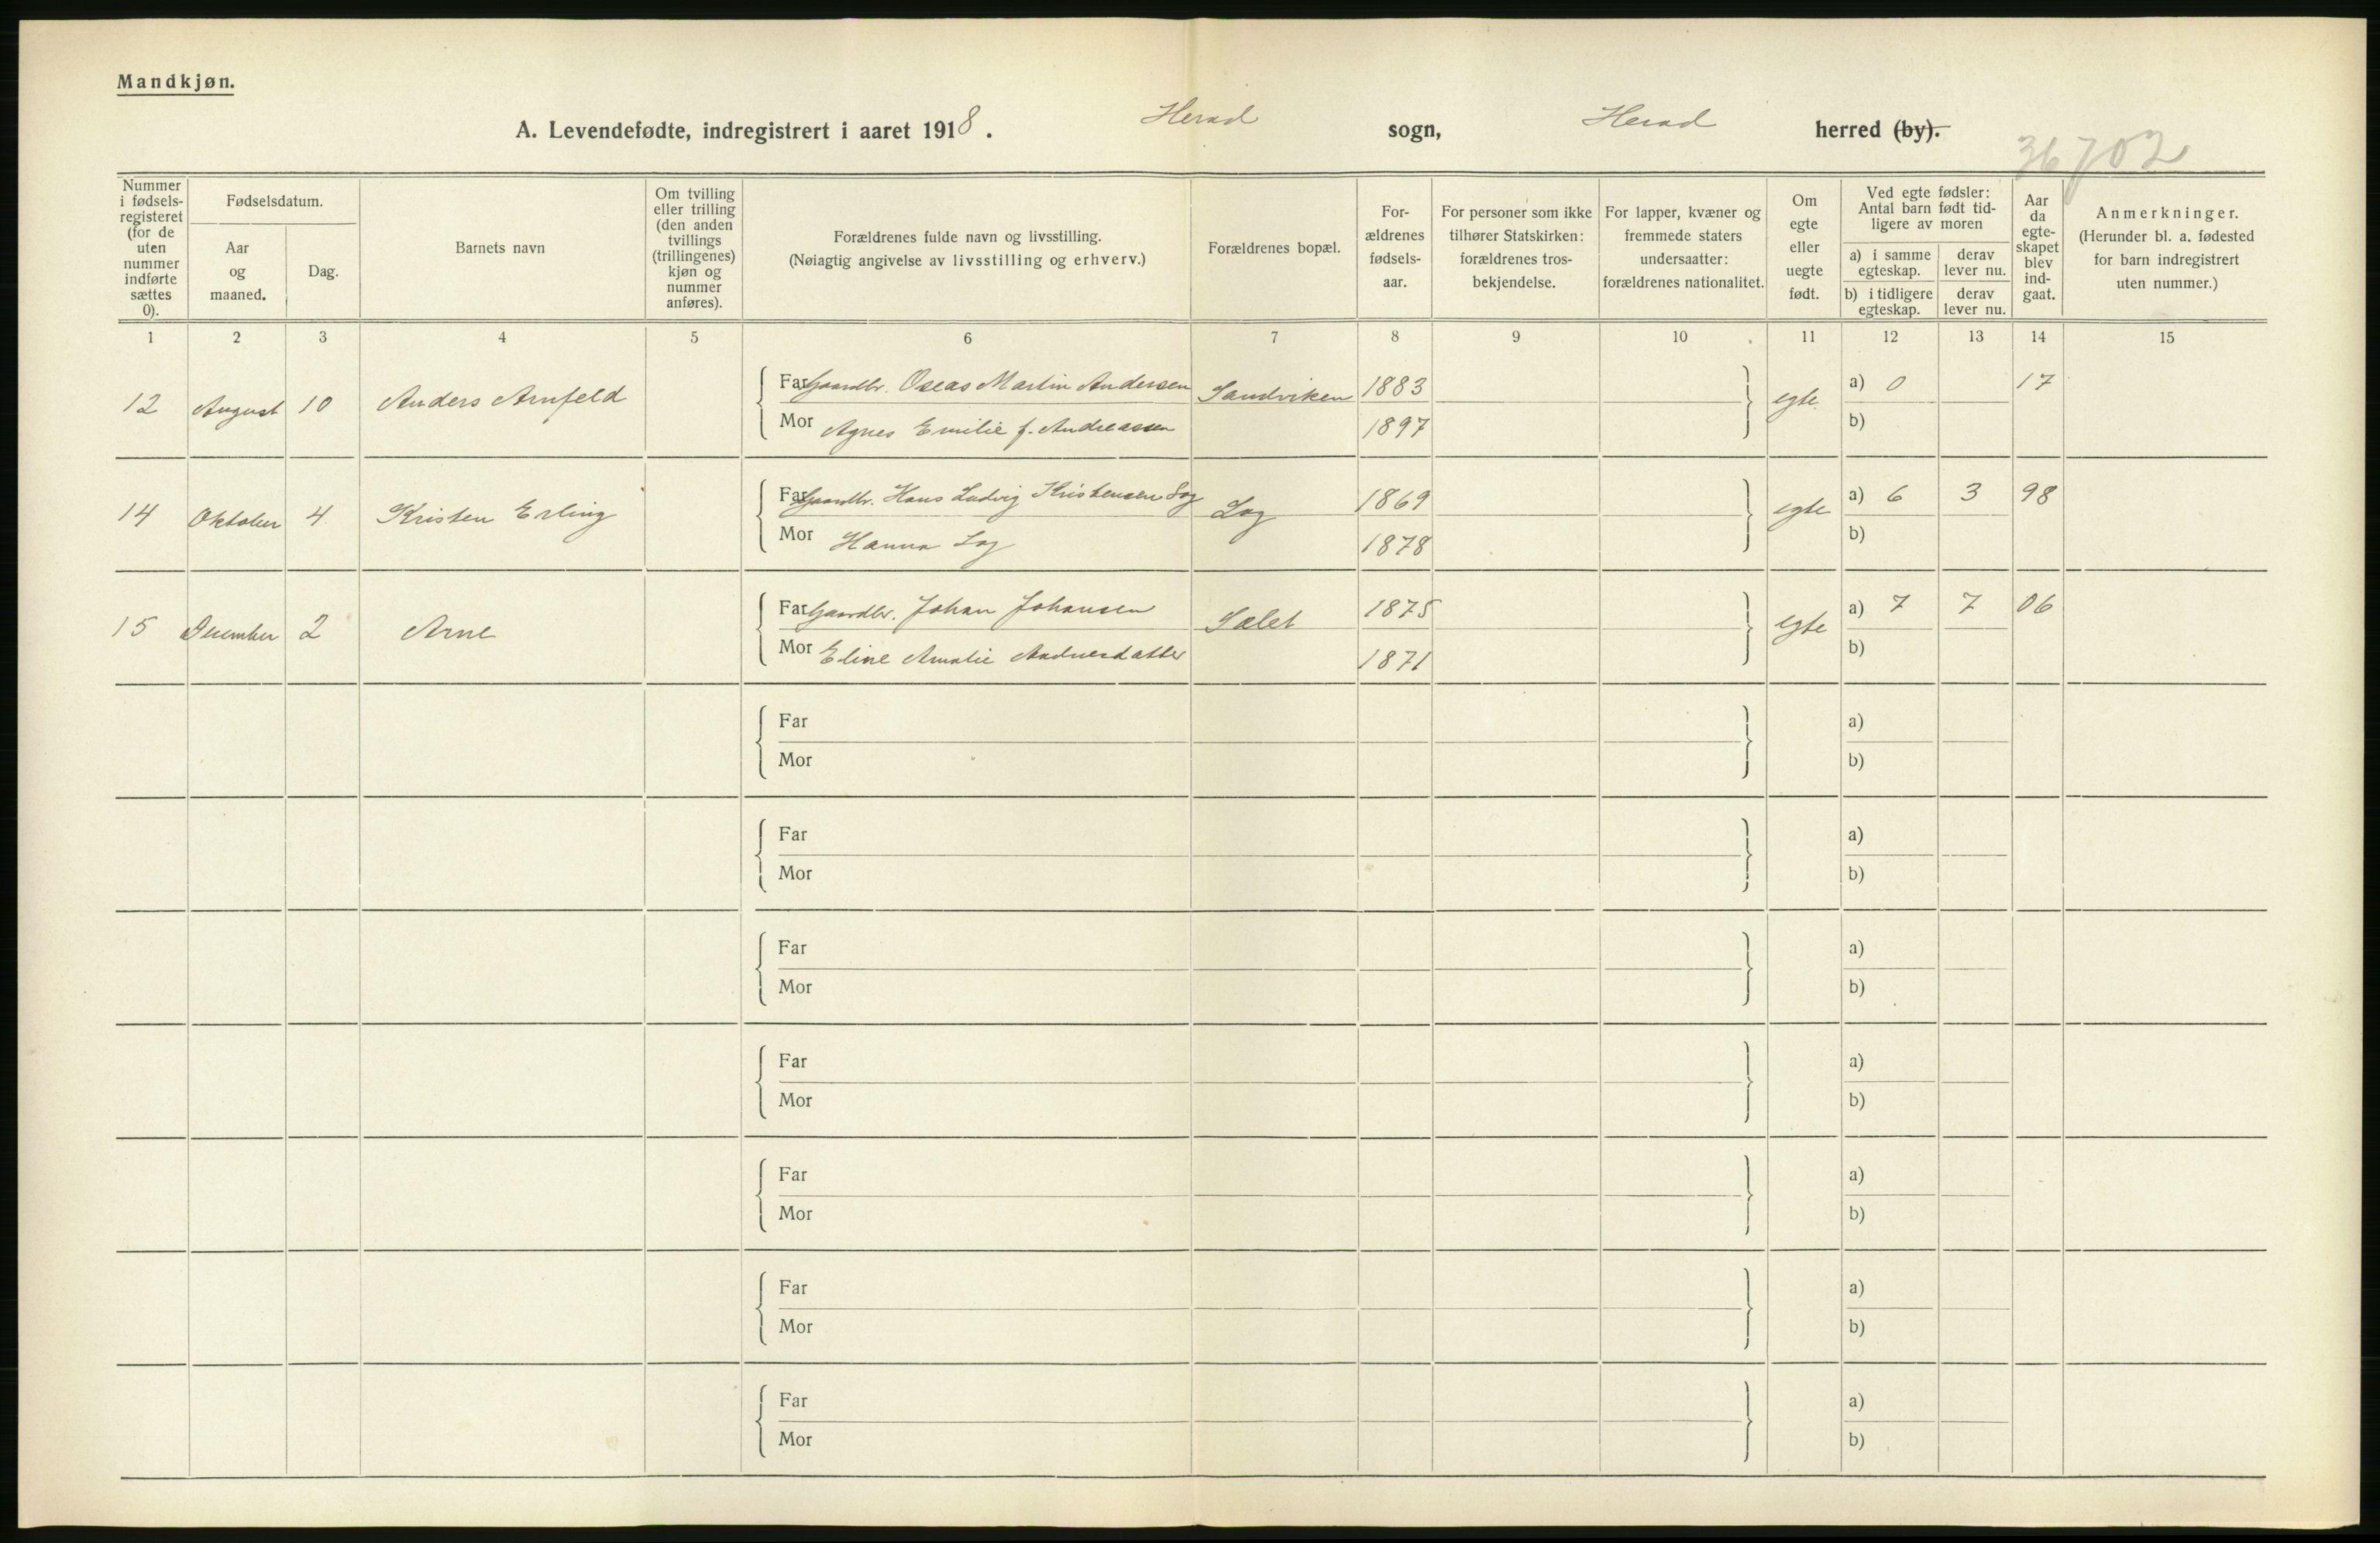 Mandkjøn.
A. Levendefødte, indregistrert i aaret 1918. Herad sogn, Herad herred (by).
36702
Nummer i fødsels-registeret (for de uten nummer indførte sættes 0).
Fødselsdatum.
Aar og maaned.
Dag.
Barnets navn
Om tvilling eller trilling (den anden tvillings (trillingenes) kjøn og nummer anføres).
Forældrenes fulde navn og livsstilling.
(Nøiagtig angivelse av livsstilling og erhverv.)
Forældrenes bopæl.
For-ældrenes fødsels-aar.
For personer som ikke tilhører Statskirken: forældrenes tros-bekjendelse.
For lapper, kvæner og fremmede staters undersaatter: forældrenes nationalitet.
Om egte eller uegte født.
Ved egte fødsler: Antal barn født tid-ligere av moren
a) i samme egteskap.
derav lever nu.
b) i tidligere egteskap.
derav lever nu.
Aar da egte-skapet blev ind-gaat.
Anmerkninger.
(Herunder bl. a. fødested for barn indregistrert uten nummer.)
1 2 3 4 5 6 7 8 9 10 11 12 13 14 15
12 August 10 Anders Arnfeld Far Gaardbr. Oseas Martin Andersen Sandviken 1883 egte a) 0 17
Mor Agnes Emilie f. Andreassen 1897 b)
14 Oktober 4 Kristen Erling Far Gaardbr. Hans Ludvig Kristensen Log Log 1869 egte a) 6 3 98
Mor Hanna Log 1878 b)
15 December 2 Arne Far Gaardbr. Johan Johansen Sælet 1875 egte a) 7 7 06
Mor Eline Amalie 1871 b)
Far a)
Mor b)
Far a)
Mor b)
Far a)
Mor b)
Far a)
Mor b)
Far a)
Mor b)
Far a)
Mor b)
Far a)
Mor b)